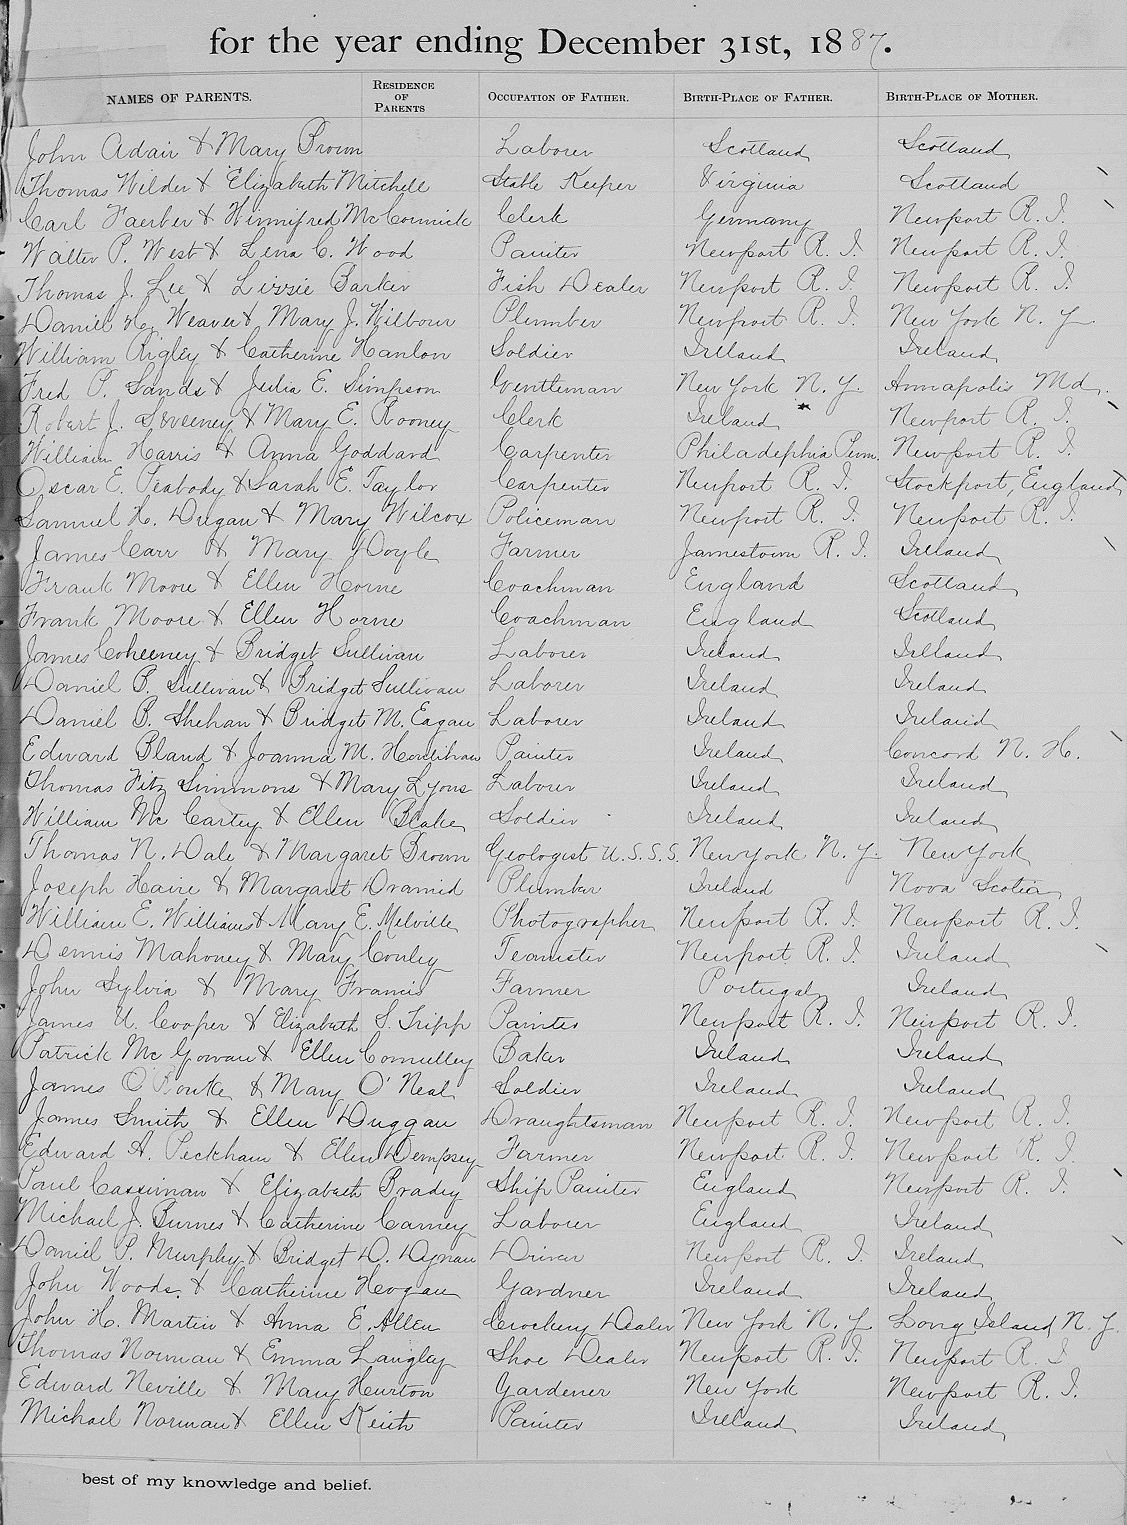 for the year ending December 31st, 1887.
NAMES OF PARENTS. RESIDENCE OF PARENTS OCCUPATION OF FATHER. BIRTH-PLACE OF FATHER. BIRTH-PLACE OF MOTHER.
John Adair & Mary Brown Laborer Scotland Scotland
Thomas Wilder & Elizabeth Mitchell Stable Keeper Virginia Scotland
Carl Faerber & Winnifred McCormick Clerk Germany Newport R. I.
Walter P. West & Lena C. Wood Painter Newport R. I. Newport R. I.
Thomas J. Lee & Lizzie Barker Fish Dealer Newport R. I. Newport R. I.
Daniel H. Weaver & Mary J. Wilbour Plumber Newport R. I. New York N. Y.
William Rigley & Catherine Hanlon Soldier Ireland Ireland
Fred P. Sands & Julia E. Simpson Gentleman New York N. Y. Annapolis Md.
Robert J. Sweeney & Mary E. Rooney Clerk Ireland Newport R. I.
William Harris & Anna Goddard Carpenter Philadelphia Penn. Newport R. I.
Oscar E. Peabody & Sarah E. Taylor Carpenter Newport R. I. Stockport, England
Samuel H. Dugan & Mary Wilcox Policeman Newport R. I. Newport R. I.
James Carr & Mary Doyle Farmer Jamestown R. I. Ireland
Frank Moore & Ellen Horne Coachman England Scotland
Frank Moore & Ellen Horne Coachman England Scotland
James Coheeney & Bridget Sullivan Laborer Ireland Ireland
Daniel P. Sullivan & Bridget Sullivan Laborer Ireland Ireland
Daniel B. Shehan & Bridget M. Eagan Laborer Ireland Ireland
Edward Bland & Joanna M. Houlihan Painter Ireland Concord N. H.
Thomas Fitz Simmons & Mary Lyons Laborer Ireland Ireland
William Mc Cartey & Ellen Blake Soldier Ireland Ireland
Thomas N. Dale & Margaret Brown Geologist U.S.S.S. New York N. Y. New York
Joseph Haire & Margaret Dramid Plumber Ireland Nova Scotia
William E. Williams & Mary E. Melville Photographer Newport R. I. Newport R. I.
Dennis Mahoney & Mary Conley Teamster Newport R. I. Ireland
John Sylvia & Mary Francis Farmer Portugal Ireland
James U. Cooper & Elizabeth S. Tripp Painter Newport R. I. Newport R. I.
Patrick Mc Gowan & Ellen Connelley Baker Ireland Ireland
James O'Rourke & Mary O'Neal Soldier Ireland Ireland
James Smith & Ellen Duggan Draughtsman Newport R. I. Newport R. I.
Edward A. Peckham & Ellen Dempsey Farmer Newport R. I. Newport R. I.
Paul Cassiman & Elizabeth Brady Ship Painter England Newport R. I.
Michael J. Burnes & Catherine Carney Laborer England Ireland
Daniel P. Murphy & Bridget D. Dynan Driver Newport R. I. Ireland
John Woods & Catherine Hogan Gardner Ireland Ireland
John H. Martin & Anna E. Allen Crockery Dealer New York N. Y. Long Island N. Y.
Thomas Norman & Emma Langley Shoe Dealer Newport R. I. Newport R. I.
Edward Neville & Mary Hurton Gardener New York Newport R. I.
Michael Norman & Ellen Keith Painter Ireland Ireland
best of my knowledge and belief.